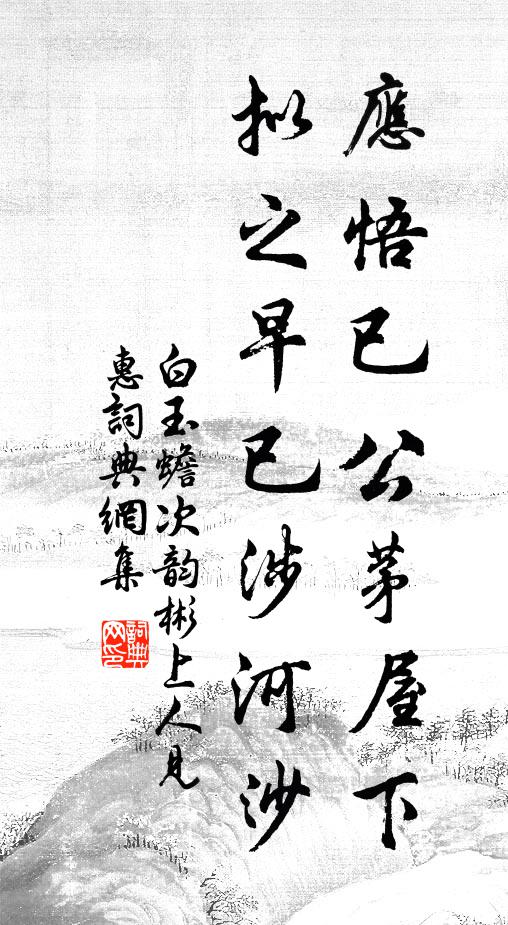 應悟已公茅屋下
拟之早已涉河沙
白玉蟾次韵彬上人見
惠詞典網集
詞典
网印